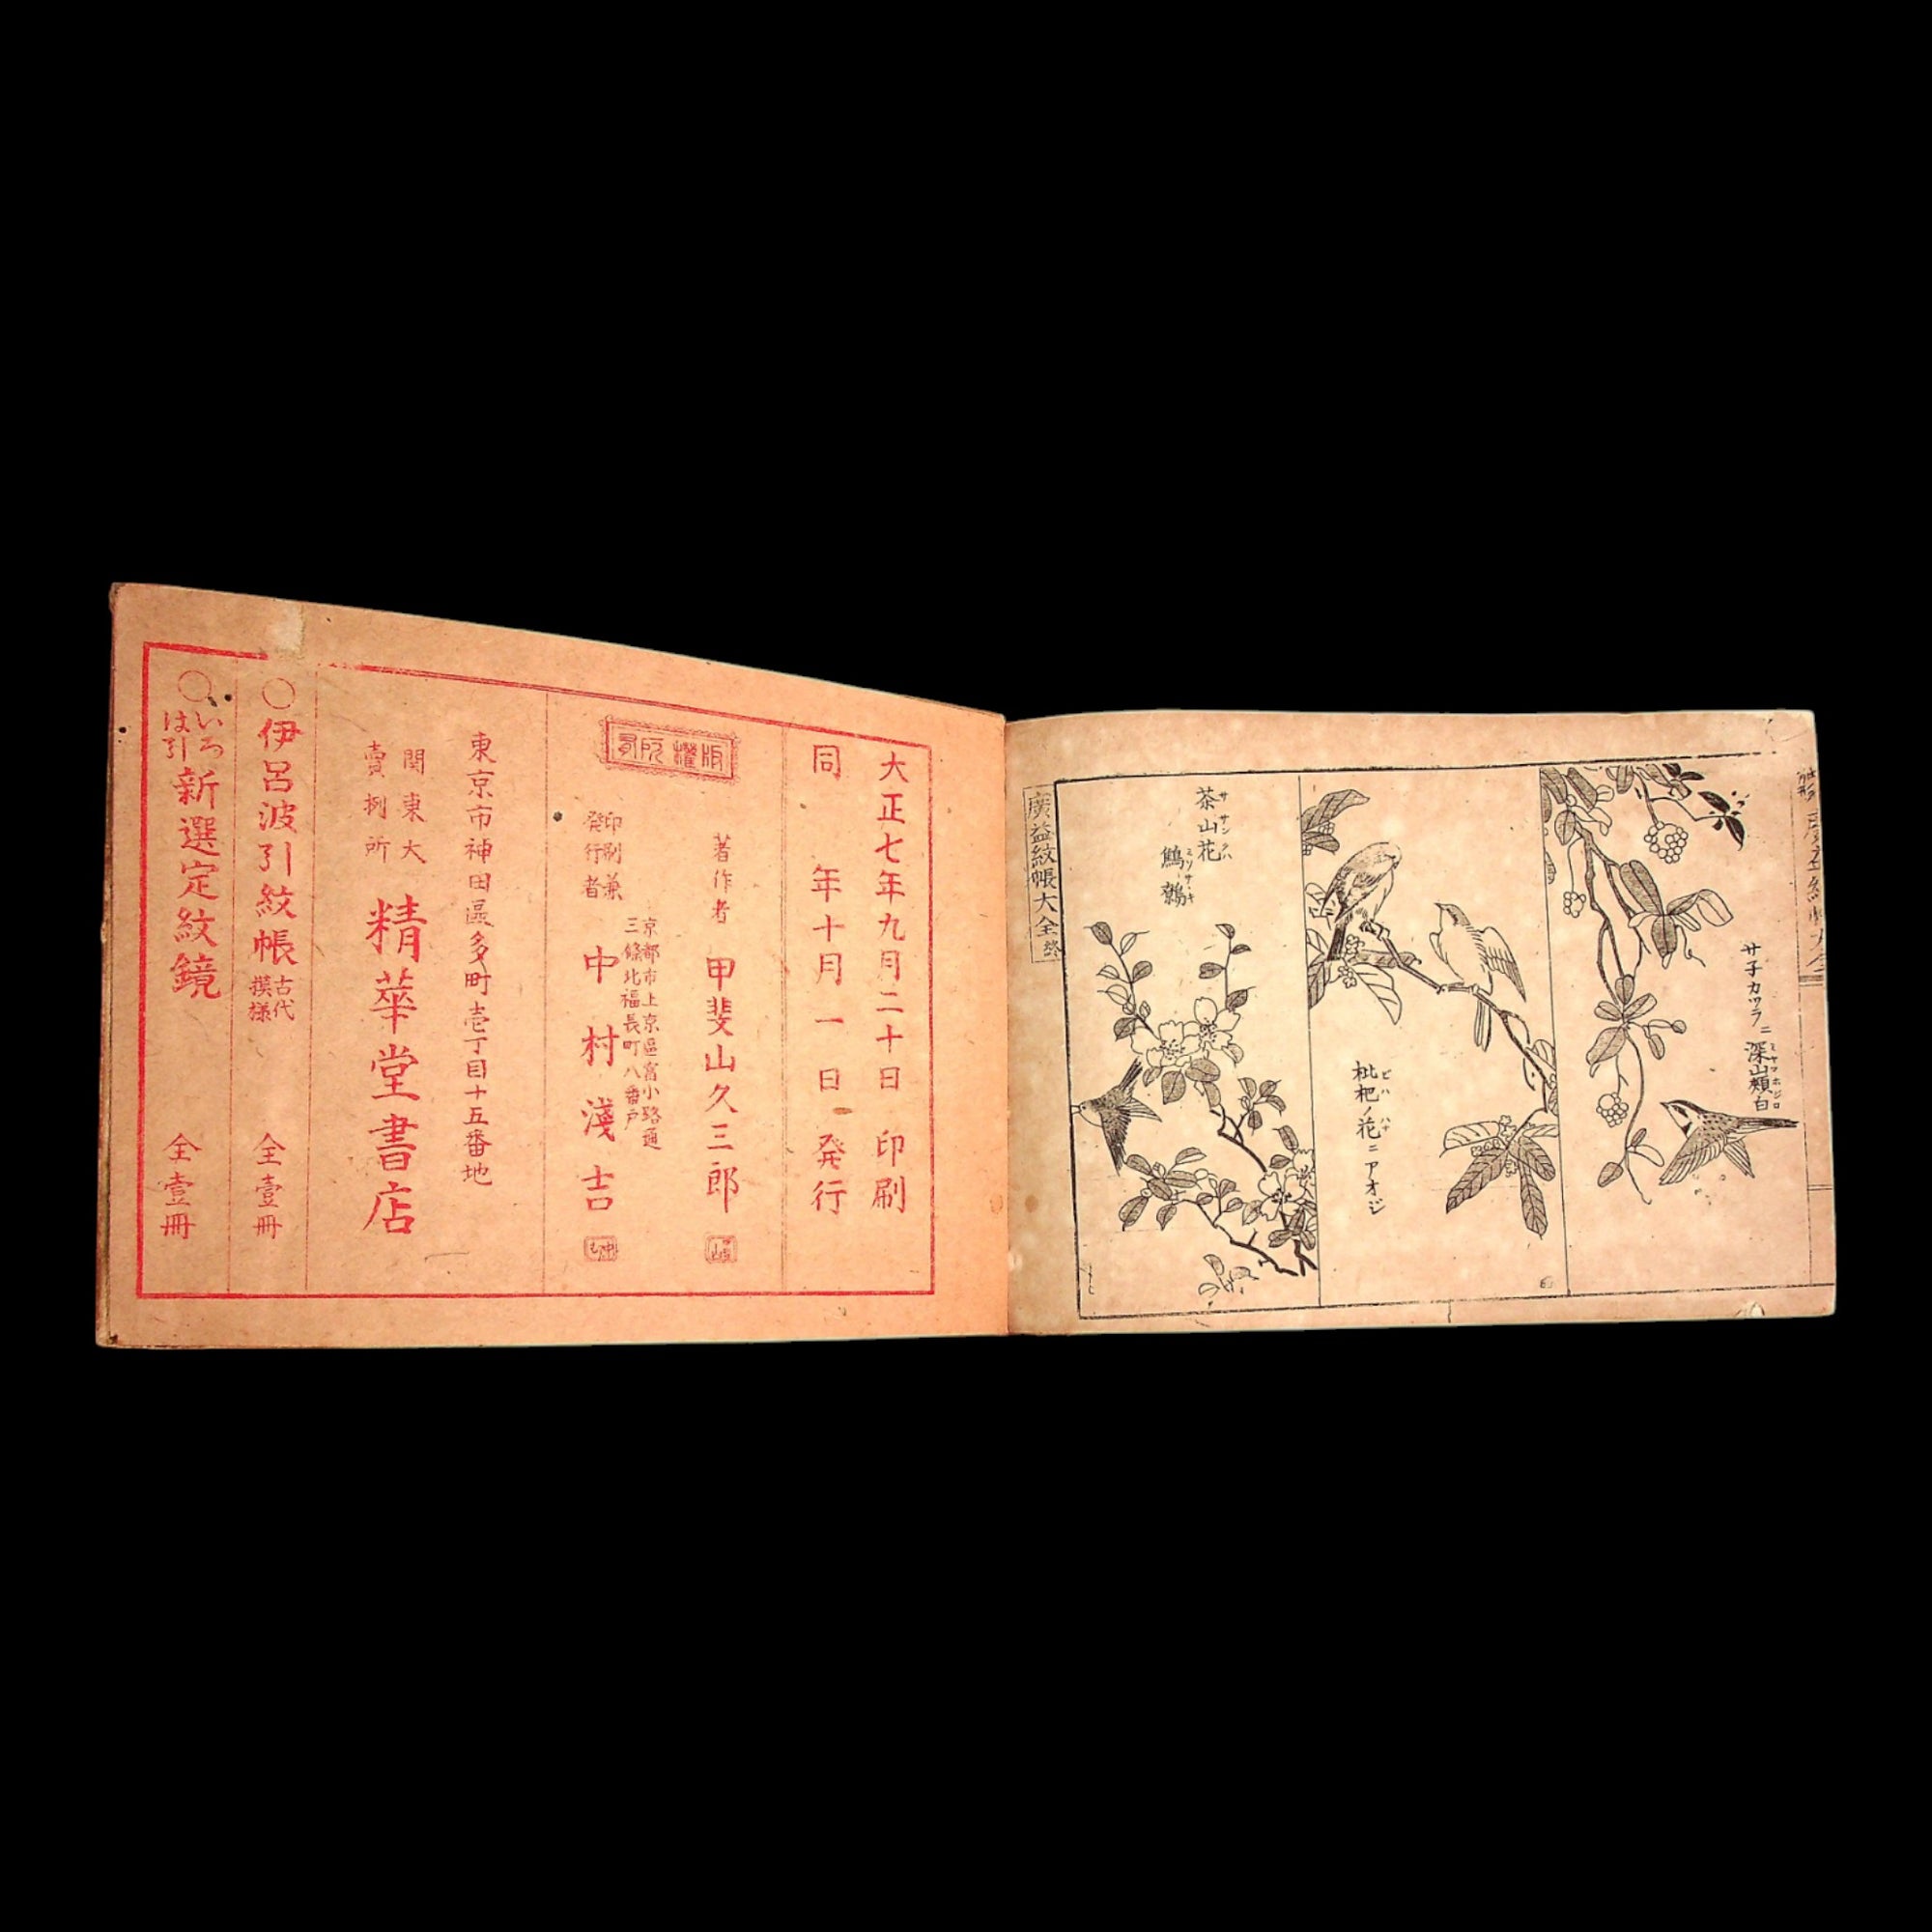 サ子カツラニ深山頬白
ミヤマホジロ
枇杷ノ花ニアオジ
ビハ ハナ
茶山花
サザンクハ
鷦鷯
ミソサヽキ
廣益紋帳大全 終
大正七年九月二十日印刷
同年十月一日発行
版權所有
著作者 甲斐山久三郎
京都市上京區富小路通
三條北福長町八番戸
印刷兼
発行者
中村淺吉
東京市神田區多町壱丁目十五番地
関東大
賣捌所
精華堂書店
○伊呂波引紋帳 古代
模様
全壹冊
○いろ
は引
新選定紋鏡
全壹冊